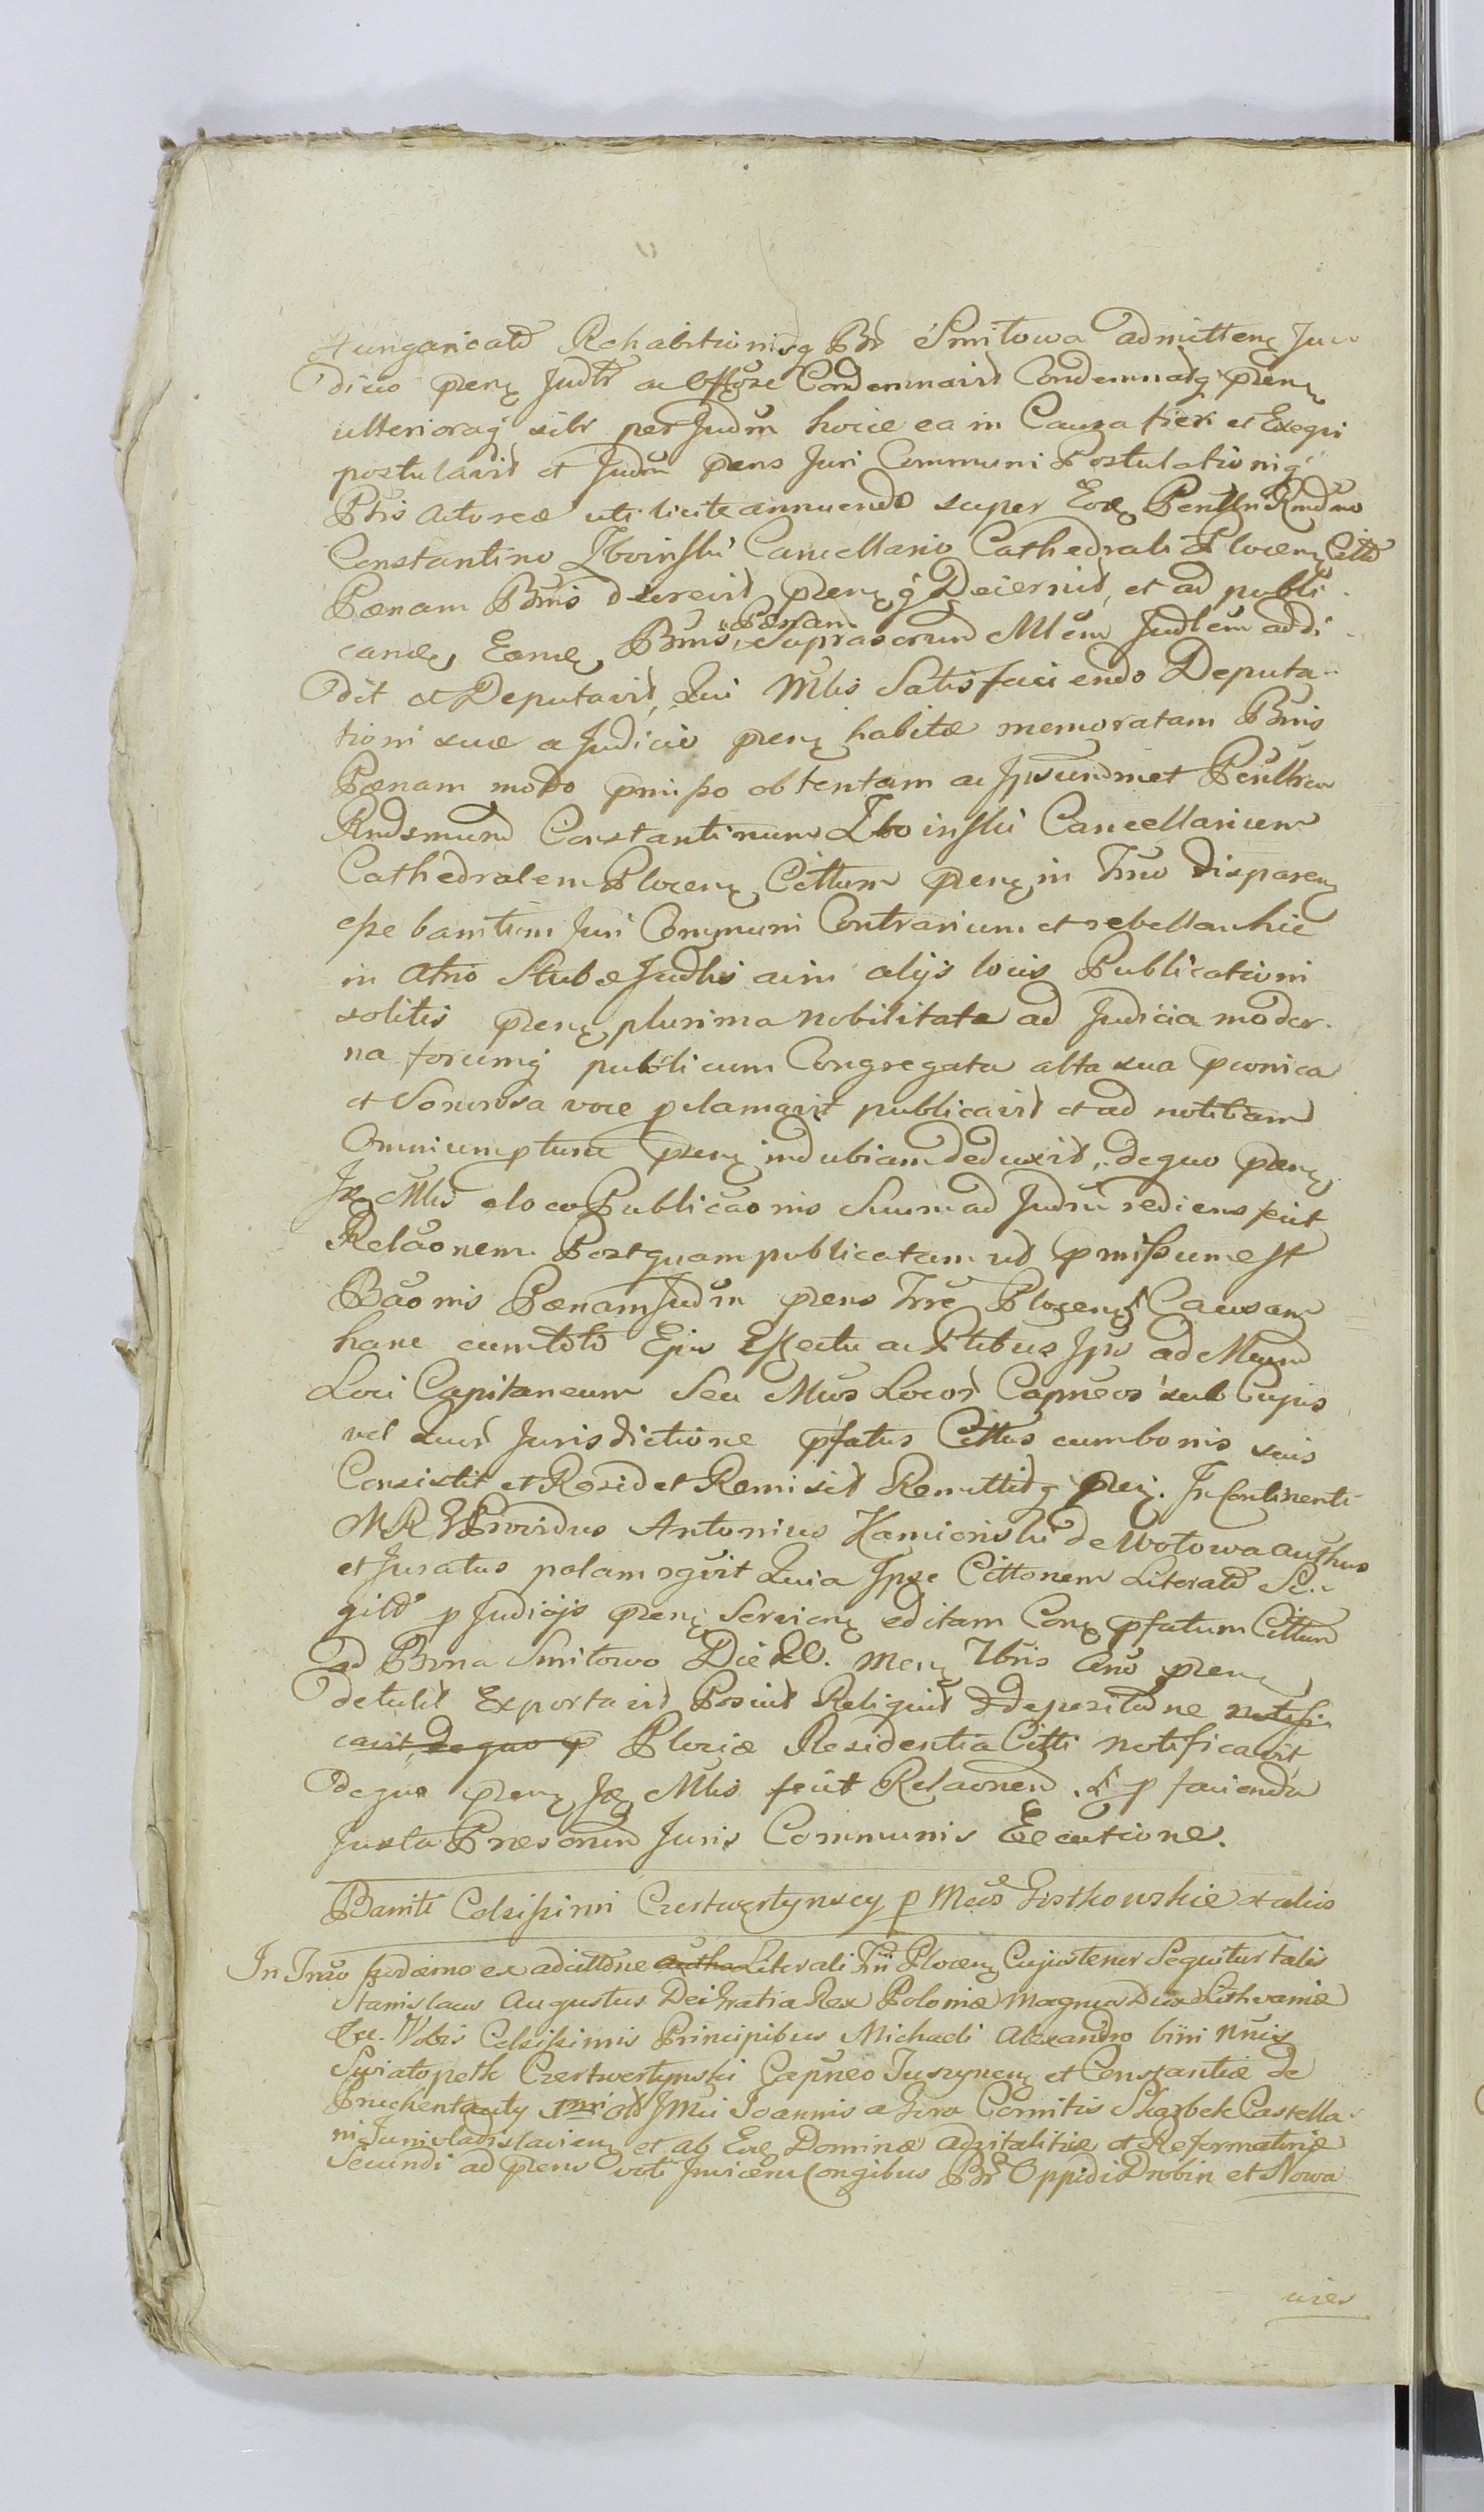 Hungaricatd Rehabitionisq Br Smitowa admitten Ju
dico pren Judtr ac Offgose Condemnavit Condemnatq pren
ulteriorag sibi per Judm hocce ea in Causa fieri et Exequi
postulavit et Judm prens Juri Communi Postulationiq
Ptis Actoreæ uti licite annuendo super Eod Penlln Rndmo
Constantino Zboinski Cancellario Cathedrali Plocen Citto
Pænam Bnis decrevit prenq Decernit, et ad publi
cand Eand Bnis Pænam Suprascrum Mlem Judlem addi
dit et Deputavit, Qui Mlis Satisfaciendo Deputa
tioni suæ a Judicio pren habitæ memoratam Bnis
Pænam modo pmisso obtentam ac Ipsummet Penlln
Rndsmum Constantinum Zboinski Cancellarium
Cathedralem Plocen Cittum pren in Trno disparen
esse banitum Juri Communi Contrarium et rebellem hic
in Atrio Stubæ Judlis ac in alijs locis Publicationi
solitis pren plurima Nobilitate ad Judicia moder
na forumq publicum Congregata alta sua pconica
et Sonorosa voce pclamavit publicavit et ad notitiam
Omnium ptium pren indubiam deduxit, de quo pren
Ize Mlis e loco Publicaonis Suum ad Judm rediens fecit
Relaonem Postquam publicatam ut pmissum est
Baonis Pænam Judm prens Trre Plocen Causam
hanc cum toto Ejus Effectu ac Ptibus Ips ad Mcum
Loci Capitaneum Seu Mcos Locor Capneos sub Cujus
vel Quor Jurisdictione pfatus Cittus cum bonis suis
Consistit et Resid et Remisit Remittitq pren. In Continenti
Providus Antonius Kamionski de Wotowa authus
et Juratus palam rgvit Quia Ipse Cittonem Literatd Si
gilld p Judicijs pren Servien editam Con pfatum Cittum
ad Bona Smitowo Die Mens 7bris Ano pren
detulit Exportavit Posuit Reliquit & deposituone notifi
cavit, de quo p Plociæ Residentia Citti notificavit
de quo pren Ize Mlis fecit Relaonem. & p facienda
Juxta Præscrum Juris Communis Execcutione.
Baniti Celsissimi Czertwertynscy p Mcos Giskowskie & alios
In Trno hodierno ex adcittone autha Literali Trrii Plocen Cujus tenor Sequitur talis
Stanislaus Augustus Dei Gratia Rex Poloniæ Magnus Dux Lithvaniæ
&c. Vobis Celsissimis Principibus Michaeli Alexandro bini Nnis
Swiatopełk Czertwertynski Capneo Juszyncen et Constantiæ de
Pruchent Imi Joannis a Gora Comitis Skarbek Castella
ni Junivladislavien et ab Eod Dominæ advitalitiæ et Reformatriæ
Secundi ad prens voti Invicem Congibus Br Oppidi Drobin et Nowa
wies